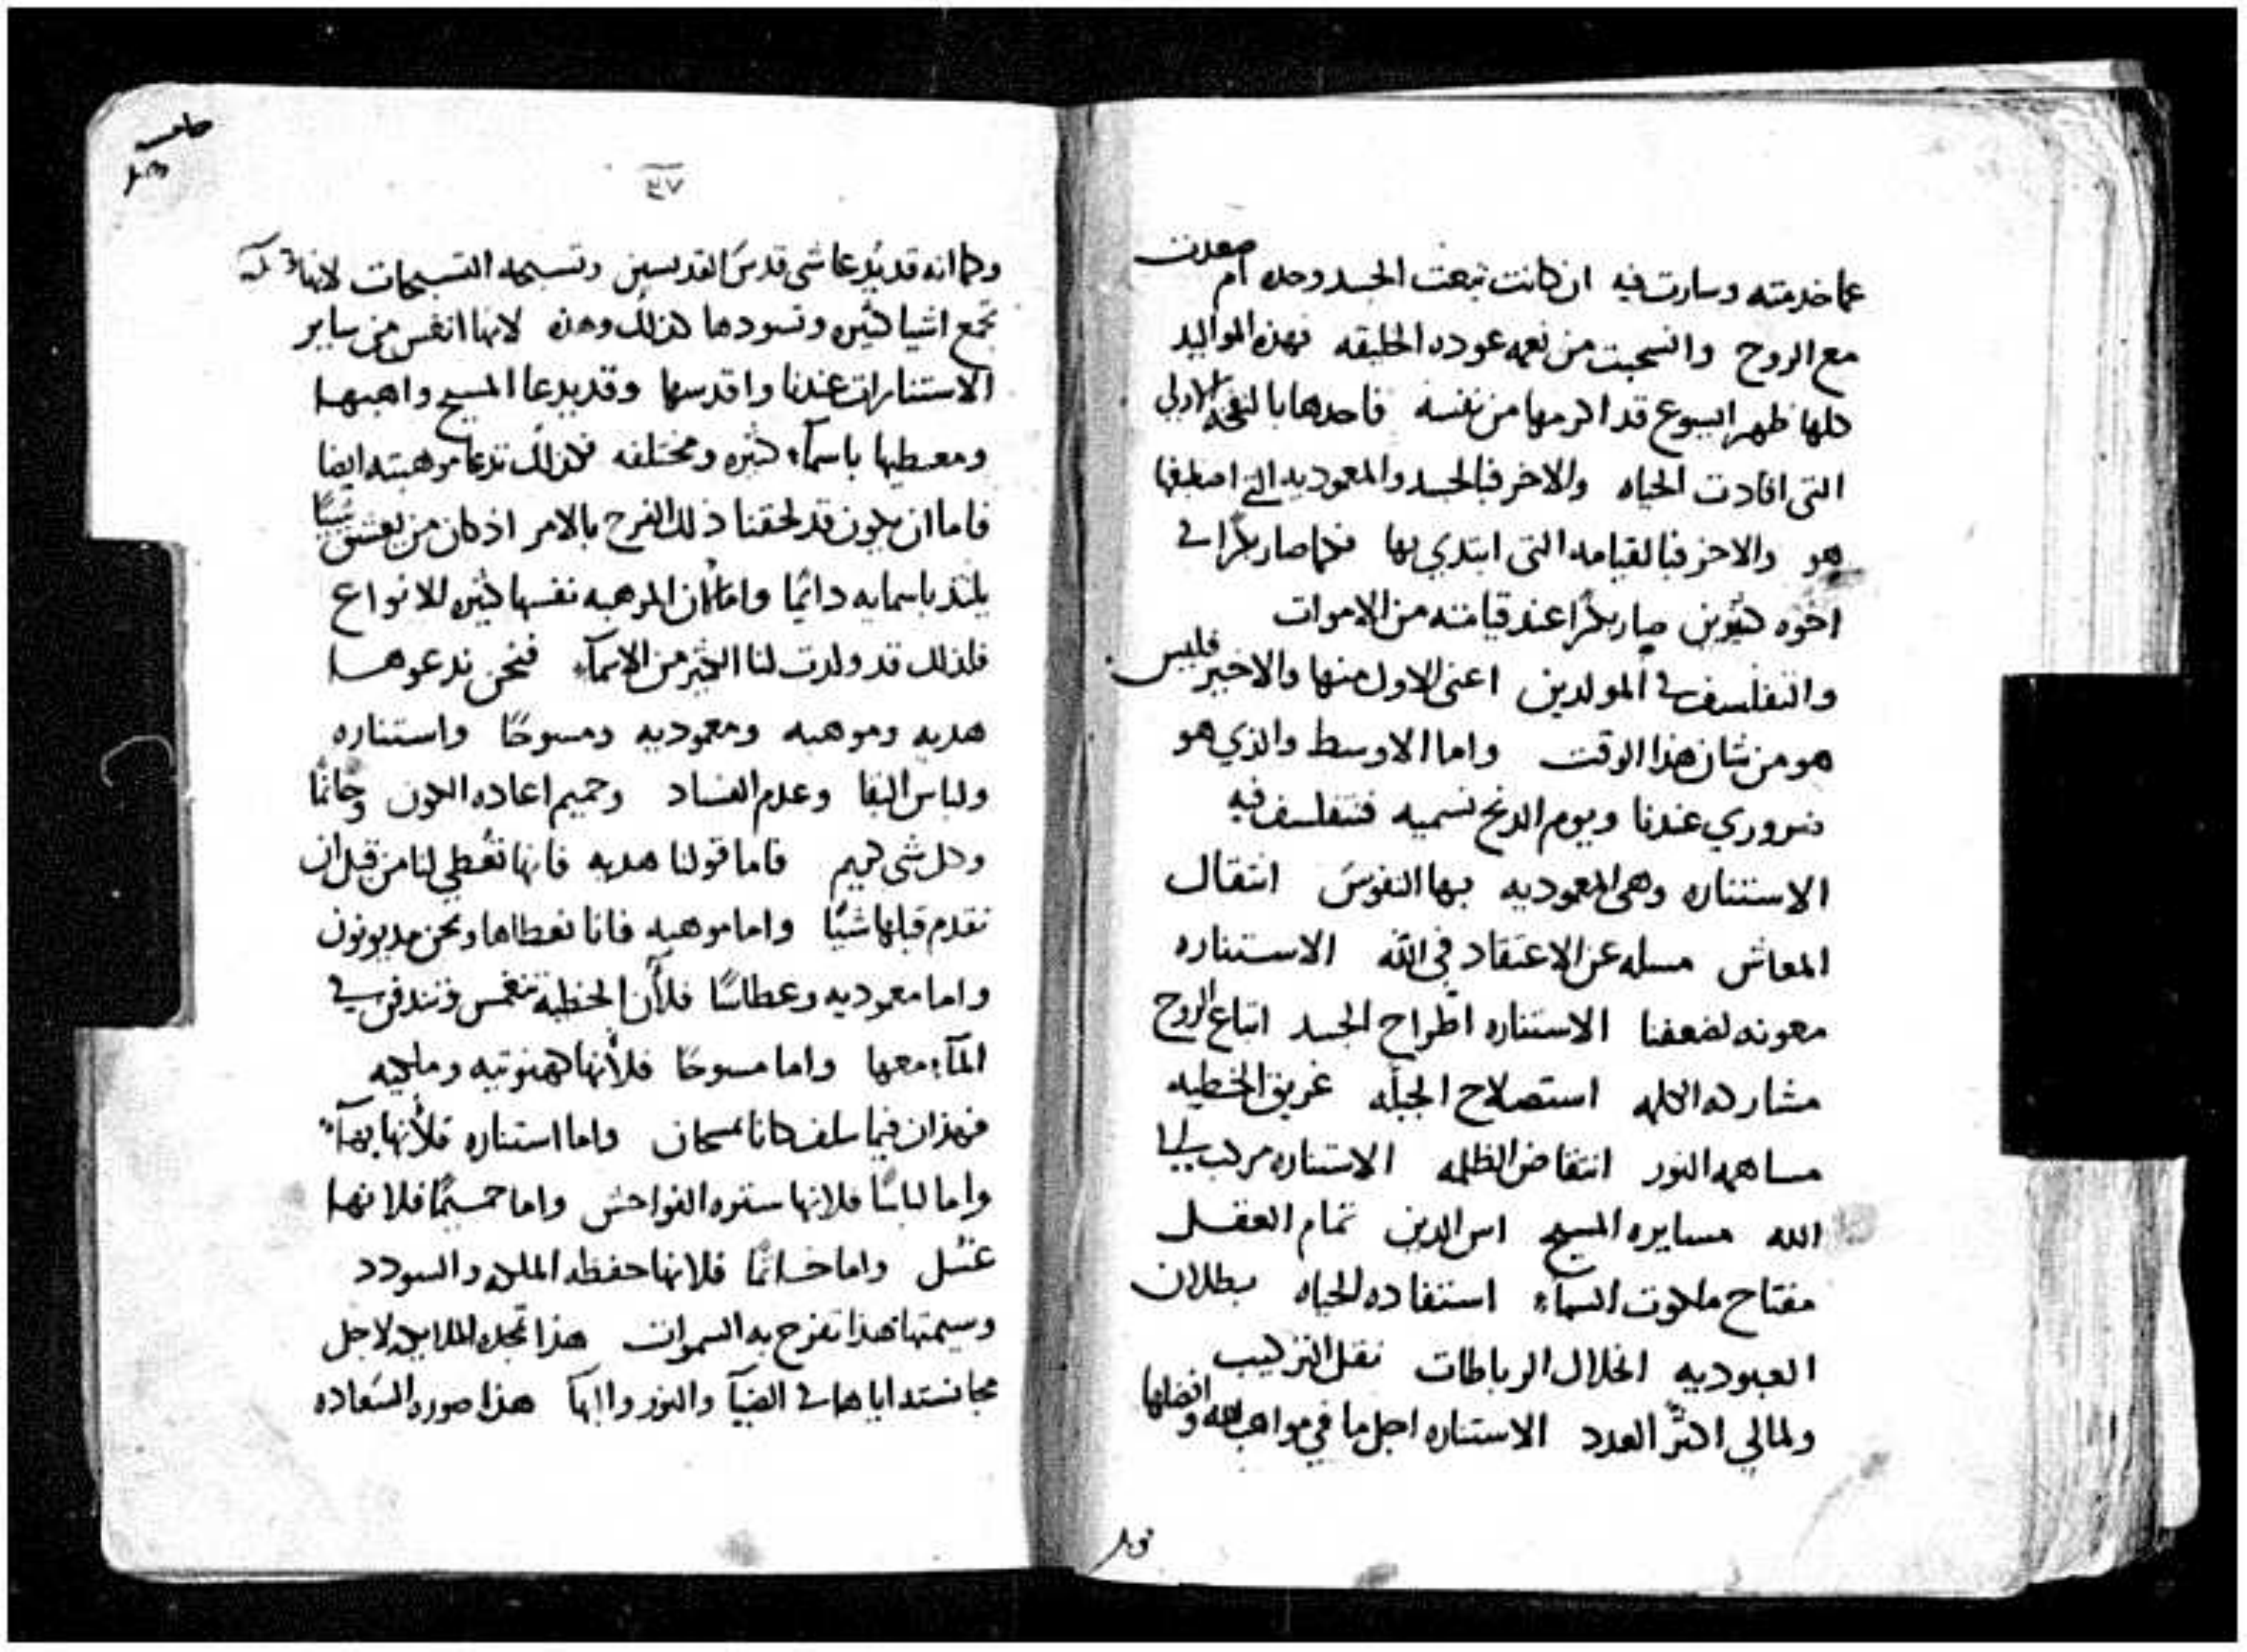 عما خدمته وسارت فيه ان كانت تبعت الجسد وحده ام صعدت
مع الروح وانسحبت من نعمه عوده الخليقه فهذه المواليد
كلها ظهر ايسوع قد اكرمها من نفسه فاحدها بالنفخه الاولى
التي افادت الحياه والاخر فبالجسد والمعوديه التي اصطبغها
هو والاخر فبالقيامه التي ابتدي بها فكما صار بكرًا في
اخوه كثيرين صار بكرًا عند قيامته من الاموات
والتفلسف في المولدين اعني الاول منها والاخير فليس
هو من شان هذا الوقت واما الاوسط والذي هو
ضروري عندنا ويوم الدنح نسميه فنتفلسف فيه
الاستناره وهي المعموديه بها النفوس انتقال
المعاش مسله عن الاعتقاد في الله الاستناره
معونه لضعفنا الاستناره اطراح الجسد اتباع الروح
مشاركه الكلمه استصلاح الجبله غريق الخطيه
مساهمه النور انتقاض الظلمه الاستناره مركب الى
الله مسايره المسيح اس الدين تمام العقل
مفتاح ملكوت السمآء استفاده الحياه بطلان
العبوديه انحلال الرباطات نقل التركيب
ولمالي اكثر العدد الاستناره اجل ما في مواهب الله وافضلها
٣٧
وكما انه قد يُدعا شي قدس القديسين وتسبحه التسبيحات لانها
تجمع اشيا كثيره وتسودها كذلك وهذه لانها انفس من ساير
الاستنارات عندنا واقدسها وقد يدعا المسيح واهبها
ومعطيها باسمآء كثيره ومختلفه فكذلك تدعا موهبته ايضا
فاما ان يكون قد لحقنا ذلك الفرح بالامر اذ كان من يعشق شيًا
يلتذ باسمايه دائما واما لان الموهبه نفسها كثيره للانواع
فلذلك قد ولدت لنا الكثير من الاسمآء فنحن ندعوها
هديه وموهبه ومعموديه ومسوحًا واستناره
ولباس البقا وعدم الفساد وحميم اعاده الكون وخاتمًا
وكل شي كريم فاما قولنا هديه فانها تُعطي لنا من قبل ان
نقدم قبلها شيًا واما موهبه فانا نعطاها ونحن مديونون
واما معوديه وعطاسًا فلأن الخطيه تنغمس وتندفن في
المآء معها واما مسوحًا فلأنها كهنوتيه وملكيه
فهذان فيما سلف كانا يمسحان واما استناره فلأنها بهآء
واما لباسًا فلانها ستره الفواحش واما حميمًا فلانها
غسل واما خاتمًا فلانها حفظه الملكه والسودد
وسيمتها هذا تفرح به السموات هذا تجده الملايكه لاجل
مجانسته اياها في الضيآ والنور والبهآ هذا صوره السعاده